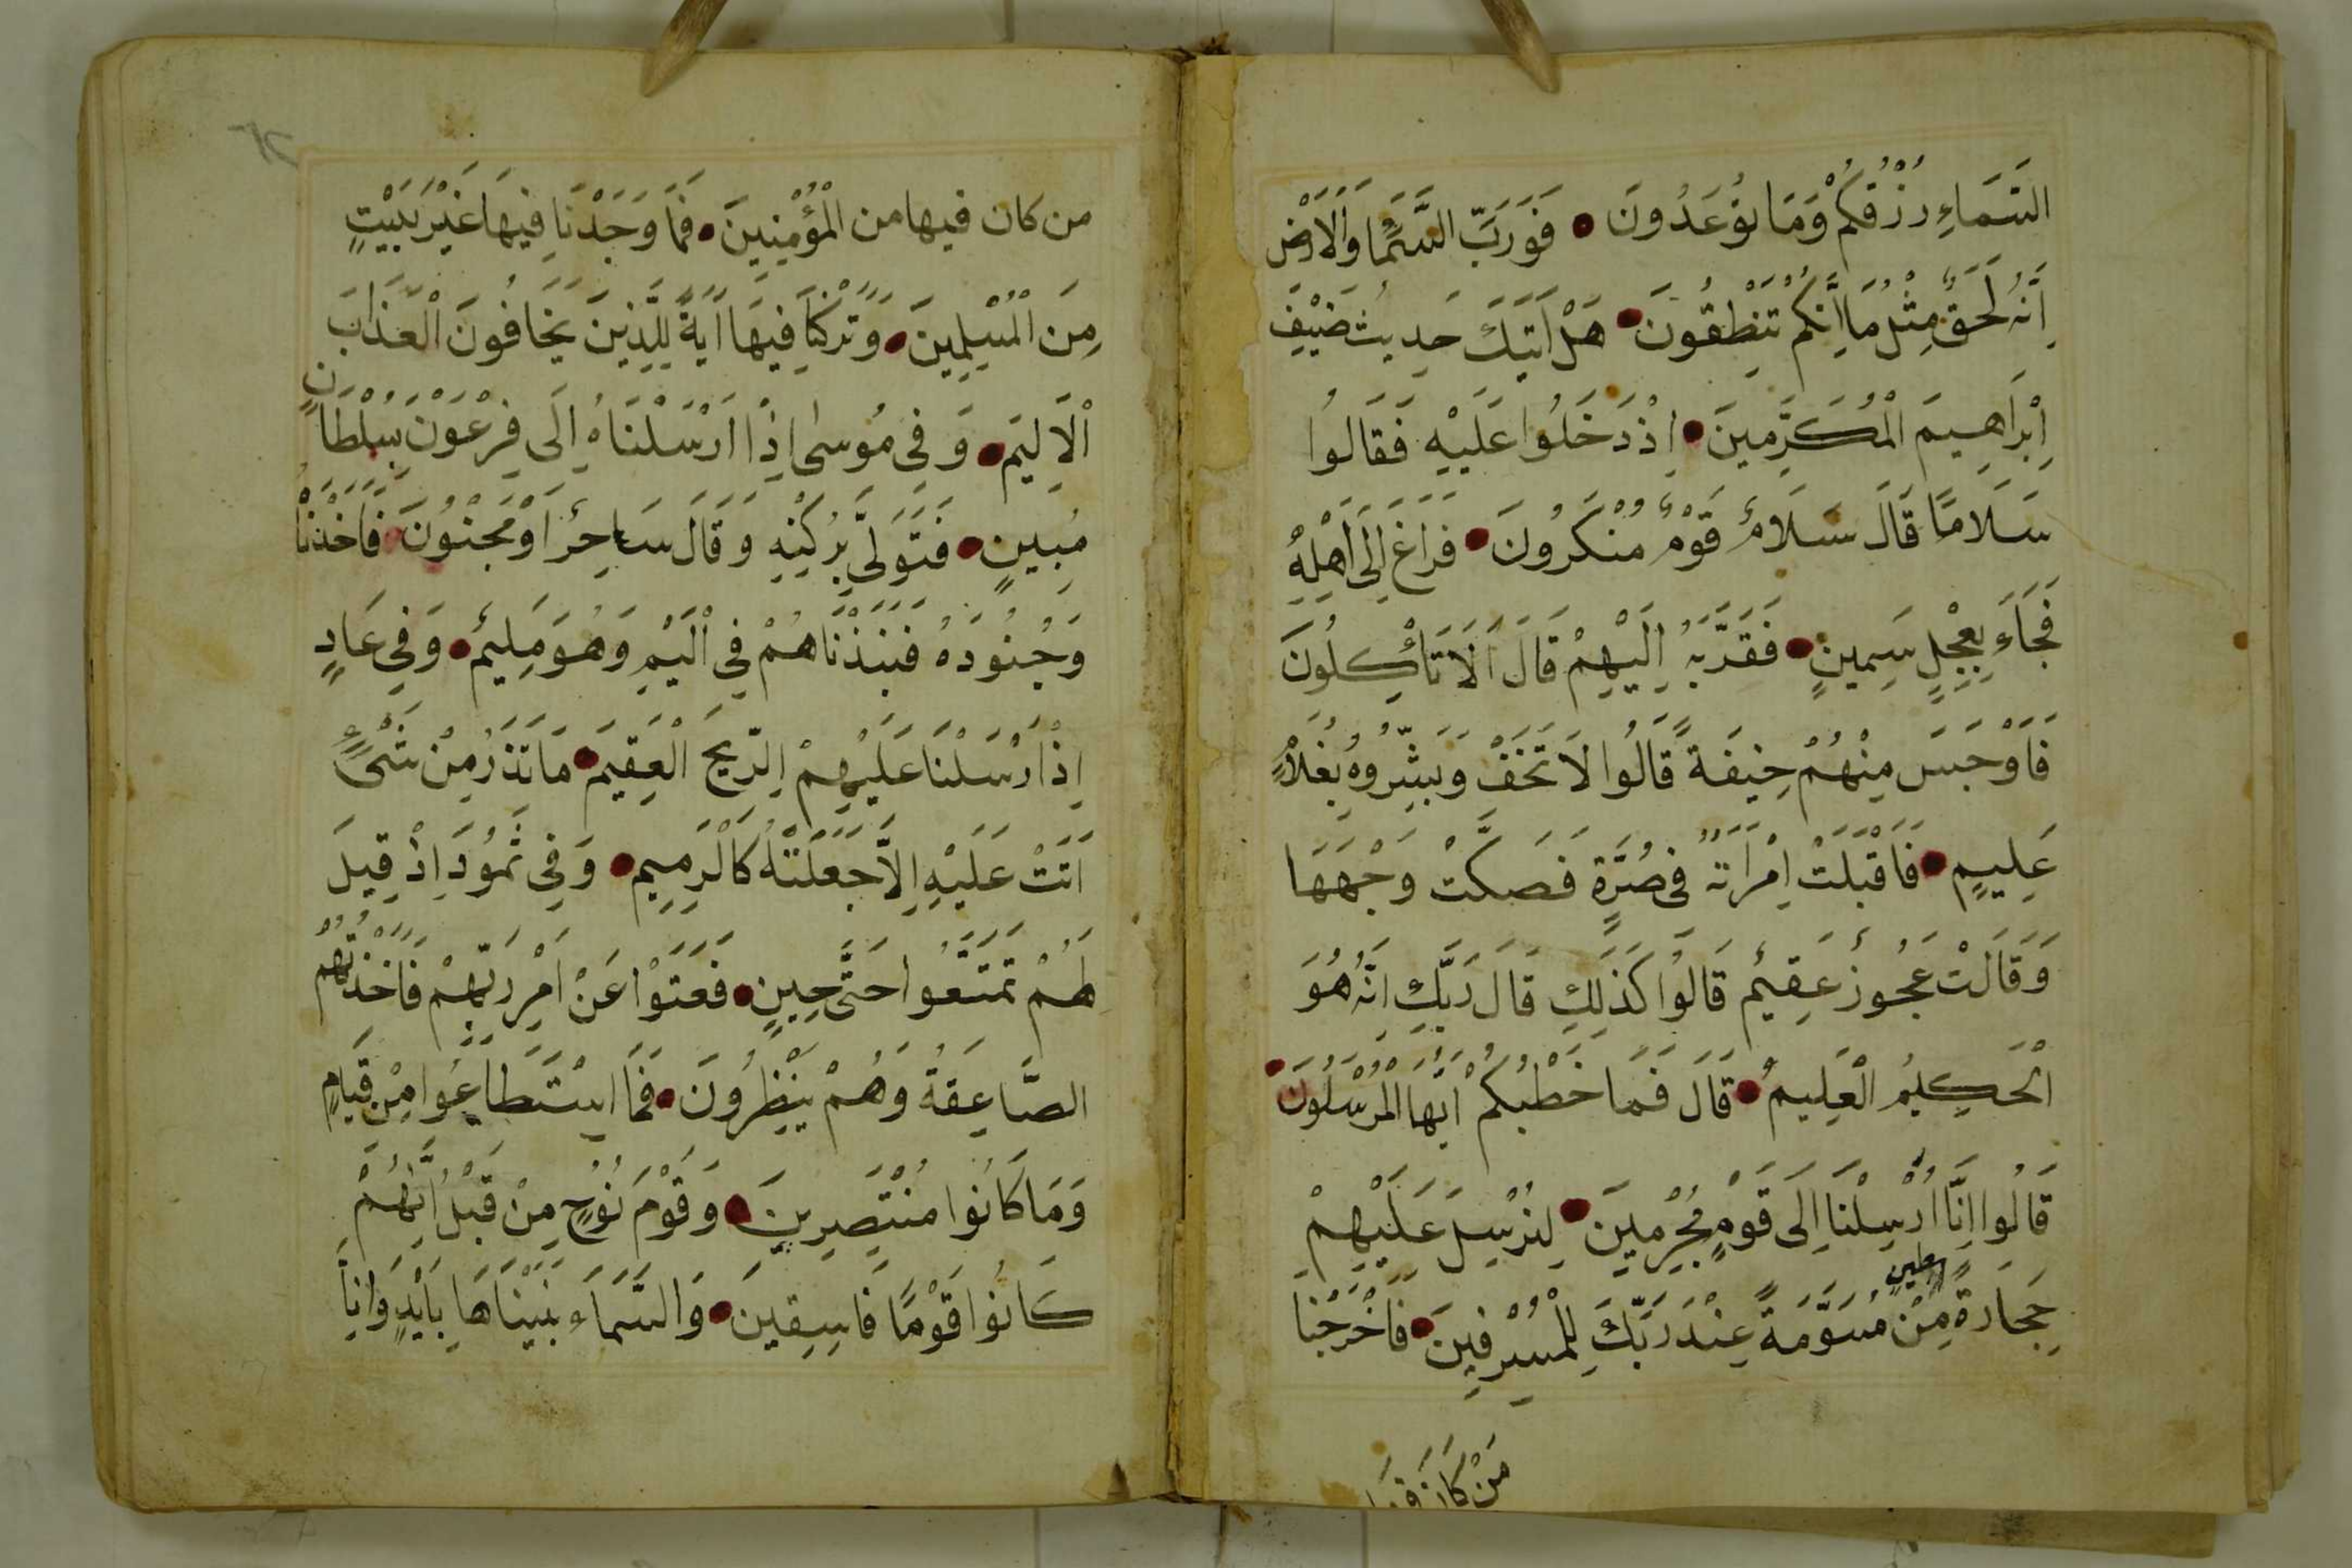 السَّمَاءِ رِزْقُكُمْ وَمَا تُوعَدُونَ فَوَرَبِّ السَّمَاءِ وَالْاَرْضِ
اِنَّهُ لَحَقٌّ مِثْلَ مَا اِنَّكُمْ تَنْطِقُونَ هَلْ اَتَيكَ حَدِيثُ ضَيْفِ
اِبْرَاهِيمَ الْمُكَرَّمِينَ اِذْ دَخَلُوا عَلَيْهِ فَقَالُوا
سَلَامًا قَالَ سَلَامٌ قَوْمٌ مُنْكَرُونَ فَرَاغَ اِلَى اَهْلِهِ
فَجَاءَ بِعِجْلٍ سَمِينٍ فَقَرَّبَهُ اِلَيْهِمْ قَالَ اَلَا تَأْكُلُونَ
فَاَوْجَسَ مِنْهُمْ خِيفَةً قَالُوا لَا تَخَفْ وَبَشَّرُوهُ بِغُلَامٍ
عَلِيمٍ فَاَقْبَلَتْ اِمْرَاَتُهُ فِى صَرَّةٍ فَصَكَّتْ وَجْهَهَا
وَقَالَتْ عَجُوزٌ عَقِيمٌ قَالُوا كَذَلِكِ قَالَ رَبُّكِ اِنَّهُ هُوَ
الْحَكِيمُ الْعَلِيمُ قَالَ فَمَا خَطْبُكُمْ اَيُّهَا الْمُرْسَلُونَ
قَالُوا اِنَّا اُرْسِلْنَا اِلَى قَوْمٍ مُجْرِمِينَ لِنُرْسِلَ عَلَيْهِمْ
حِجَارَةً مِنْ طين مُسَوَّمَةً عِنْدَ رَبِّكَ لِلْمُسْرِفِينَ فَاَخْرَجْنَا
مَنْ كَانَ فيها
من كان فيها من الْمُؤْمِنِينَ فَمَا وَجَدْنَا فِيهَا غَيْرَ بَيْتٍ
مِنَ الْمُسْلِمِينَ وَتَرَكْنَا فِيهَا اَيَةً لِلَّذِينَ يَخَافُونَ الْعَذَابَ
الْاَلِيمَ وَفِى مُوسَى اِذْ اَرْسَلْنَاهُ اِلَى فِرْعَوْنَ بِسُلْطَانٍ
مُبِينٍ فَتَوَلَّى بِرُكْنِهِ وَقَالَ سَاحِرٌ اَوْ مَجْنُونٌ فَاَخَذْنَاهُ
وَجُنُودَهُ فَنَبَذْنَاهُمْ فِى الْيَمِّ وَهُوَ مُلِيمٌ وَفِى عَادٍ
اِذْ اَرْسَلْنَا عَلَيْهِمْ الرِّيحَ الْعَقِيمَ مَا تَذَرُ مِنْ شَىْءٍ
اَتَتْ عَلَيْهِ اِلَّا جَعَلَتْهُ كَالرَّمِيمِ وَفِى ثَمُودَ اِذْ قِيلَ
لَهُمْ تَمَتَّعُوا حَتَّى حِينٍ فَعَتَوْا عَنْ اَمْرِ رَبِّهِمْ فَاَخَذَتْهُمُ
الصَّاعِقَةُ وَهُمْ يَنْظُرُونَ فَمَا اسْتَطَاعُوا مِنْ قِيَامٍ
وَمَا كَانُوا مُنْتَصِرِينَ وَقَوْمَ نُوحٍ مِنْ قَبْلُ اِنَّهُمْ
كَانُوا قَوْمًا فَاسِقِينَ وَالسَّمَاءَ بَنَيْنَاهَا بِاَيْدٍ وَاِنَّا